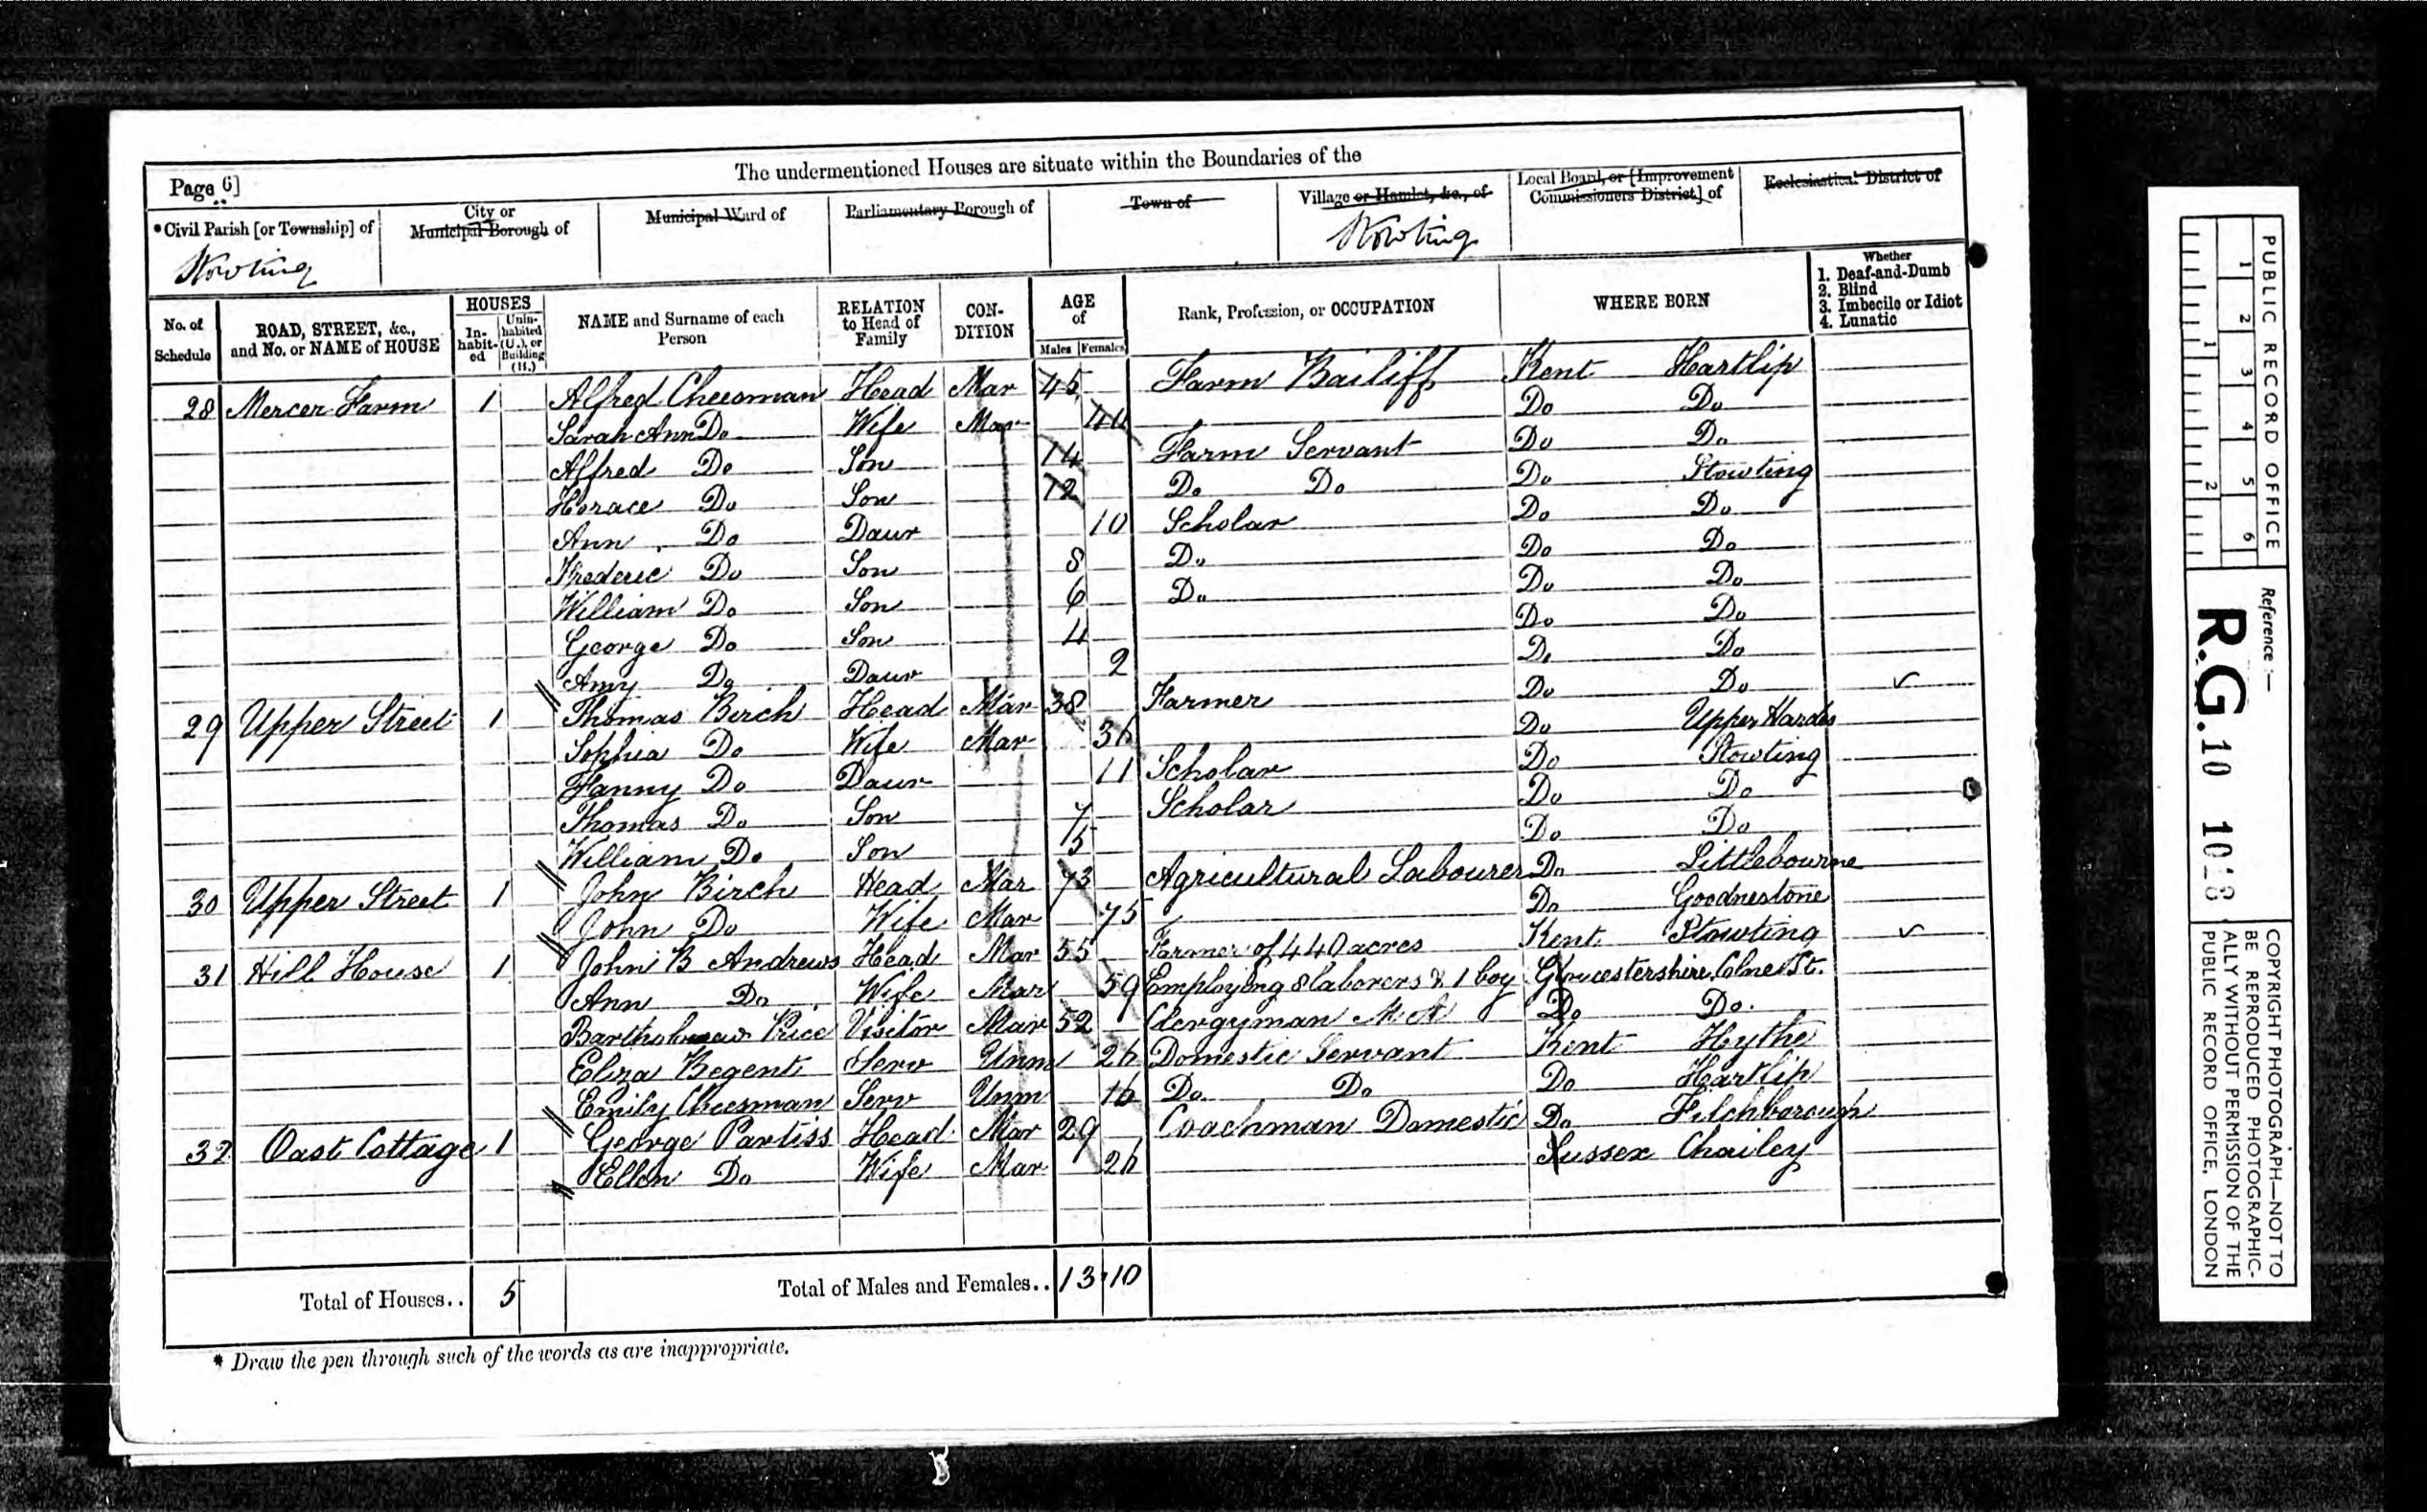 The undermentioned Houses are situate within the Boundaries of the
Page 6]
*Civil Parish [or Township] of
Stowting
City or Municipal Borough of
Municipal Ward of
Parliamentary Borough of
Town of
Village or Hamlet, &c., of
Stowting
Local Board, or [Improvement Commissioners District] of
Ecclesiastical District of
No. of Schedule
ROAD, STREET, &c., and No. or NAME of HOUSE
HOUSES
In-habit-ed
Unin-habited (U.), or Building (B.)
NAME and Surname of each Person
RELATION to Head of Family
CON-DITION
AGE of
Males Females
Rank, Profession, or OCCUPATION
WHERE BORN
Whether
1. Deaf-and-Dumb
2. Blind
3. Imbecile or Idiot
4. Lunatic
28 Mercer Farm 1 Alfred Cheesman Head Mar 45 Farm Bailiff Kent Hartlip
Sarah Ann Do Wife Mar 44 Do Do
Alfred Do Son 14 Farm Servant Do Do
Horace Do Son 12 Do Do Do Stowting
Ann Do Daur 10 Scholar Do Do
Frederic Do Son 8 Do Do Do
William Do Son 6 Do Do Do
George Do Son 4 Do Do
Amy Do Daur 2 Do Do
29 Upper Street 1 Thomas Birch Head Mar 38 Farmer Do Do
Sophia Do Wife Mar 36 Do Upper Hardes
Fanny Do Daur 11 Scholar Do Stowting
Thomas Do Son 7 Scholar Do Do
William Do Son 5 Do Do
30 Upper Street 1 John Birch Head Mar 73 Agricultural Labourer Do Littlebourne
John Do Wife Mar 75 Do Goodnestone
31 Hill House 1 John B Andrews Head Mar 55 Farmer of 440 acres Kent Stowting
Ann Do Wife Mar 59 Employing 8 laborers & 1 boy Gloucestershire, Colne St.
Bartholomew Price Visitor Mar 52 Clergyman M.A Do Do
Eliza Regent Serv Unm 26 Domestic Servant Kent Hythe
Emily Cheesman Serv Unm 16 Do Do Do Hartlip
32 Oast Cottage 1 George Partiss Head Mar 29 Coachman Domestic Do
Ellen Do Wife Mar 26 Sussex Chailey
Total of Houses.. 5 Total of Males and Females.. 13 10
* Draw the pen through such of the words as are inappropriate.
PUBLIC RECORD OFFICE
1 2 3 4 5 6
1 2
Reference :—
R.G. 10 1018
COPYRIGHT PHOTOGRAPH—NOT TO
BE REPRODUCED PHOTOGRAPHIC-
ALLY WITHOUT PERMISSION OF THE
PUBLIC RECORD OFFICE, LONDON